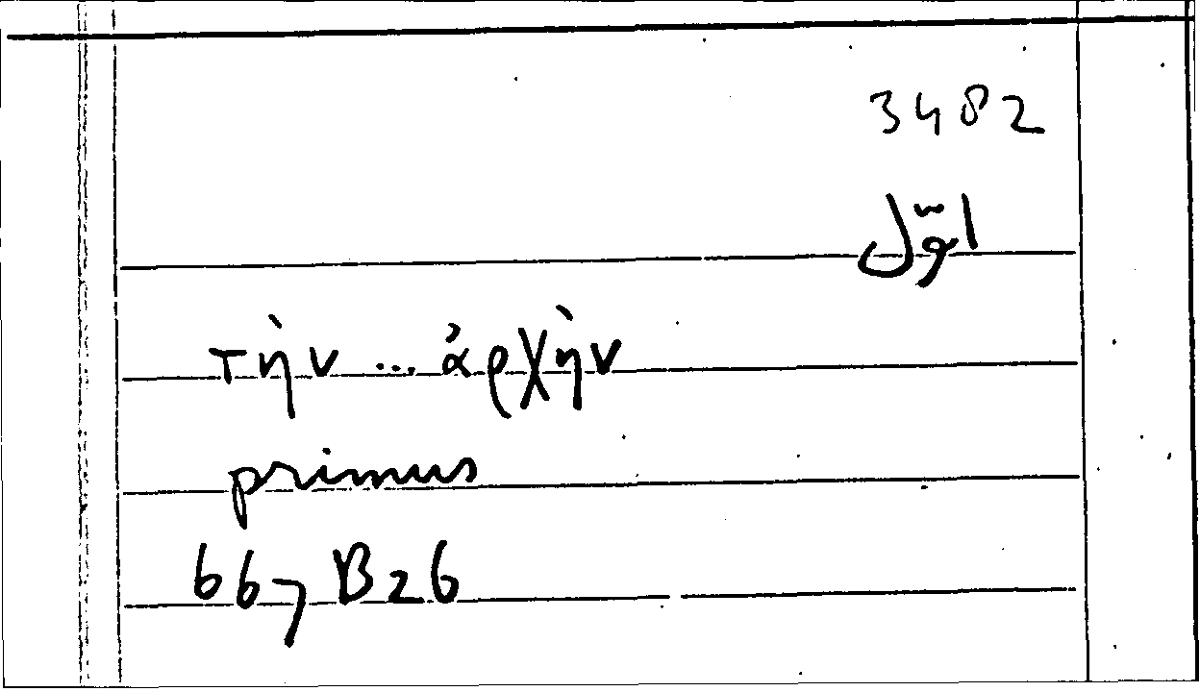 3482
اوّل
τὴν ... ἀρχὴν
primus
667 B 26